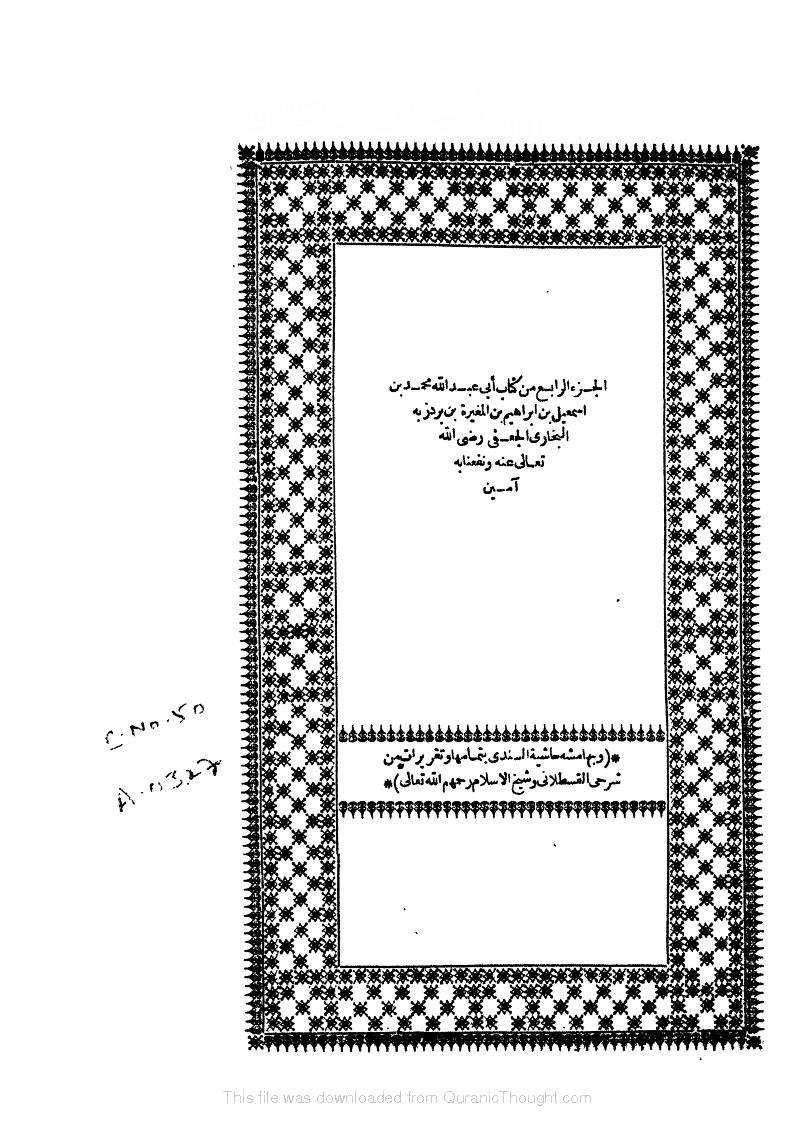 الجزء الرابع من كتاب أبى عبد الله محمد بن
اسمعيل بن ابراهيم بن المغيرة بن بردزبه
البخارى الجعفى رضى الله
تعالى عنه ونفعنا به
آمين
C. No. 50
*(وبهامشه حاشية السندى بتمامها وتقريرات من
شرحى القسطلانى وشيخ الاسلام رحمهم الله تعالى)*
This file was downloaded from QuranicThought.com